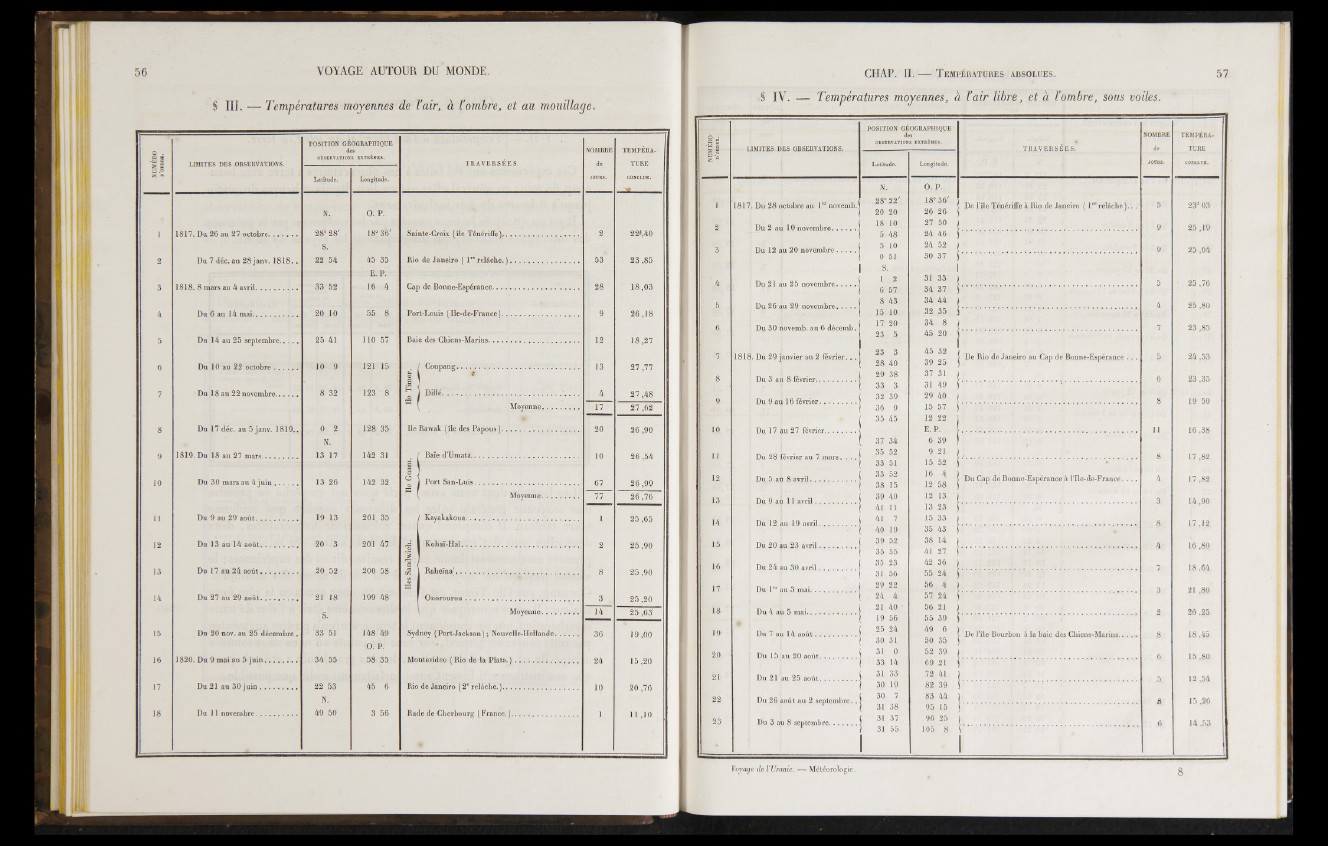 56
VOYAGE AUTOUR DU MONDE.
§ III. — Températures moyennes de l'air, à l'ombre, et au mouillage.
NUMÉRO D'ORDRE. LIMITES DES OBSERVATIONS. POSITION GÉOGRAPHIQUE des OBSERVATIONS EXTRÊMES. TRAVERSÉES. NOMBRE de JOURS. TEMPÉRATURE CONCLUE.
Latitude. Longitude.
N. O. P.
1 1817. Du 26 au 27 octobre........ 28° 28′ 18° 36′ Sainte-Croix (île Ténériffe)................... 2 22°,40
S.
2 Du 7 déc. au 28 janv. 1818.. 22 54 45 35 Rio de Janeiro ( 1re relâche.)................. 53 23 ,85
E. P.
3 1818. 8 mars au 4 avril........... 33 52 16 4 Cap de Bonne-Espérance..................... 28 18 ,03
4 Du 6 au 14 mai............ 20 10 55 8 Port-Louis (Ile-de-France)................... 9 26 ,18
5 Du 14 au 25 septembre..... 25 41 110 57 Baie des Chiens-Marins....................... 12 18 ,27
6 Du 10 au 22 octobre....... 10 9 121 15 Ile Timor. Coupang.............................. 13 27 ,77
7 Du 18 au 22 novembre...... 8 32 123 8 Dillé................................. 4 27 ,48
Moyenne......... 17 27 ,62
8 Du 17 déc. au 5 janv. 1819.. 0 2 128 35 Ile Rawak (île des Papous)................... 20 26 ,90
N.
9 1819. Du 18 au 27 mars......... 13 17 142 31 Ile Guam. Baie d'Umata........................... 10 26 ,54
10 Du 30 mars au 4 juin....... 13 26 142 32 Port San-Luis.......................... 67 26 ,99
Moyenne......... 77 26 ,76
11 Du 9 au 29 août........... 19 13 201 35 Iles Sandwich. Kayakakoua........................... 1 25 ,65
12 Du 13 au 14 août.......... 20 3 201 47 Kohaï-Haï............................. 2 25 ,90
13 Du 17 au 24 août.......... 20 52 200 58 Raheina.............................. 8 25 ,90
14 Du 27 au 29 août.......... 21 18 199 48 Onorourou............................ 3 25 ,20
S. Moyenne......... 14 25 ,63
15 Du 20 nov. au 25 décembre. 33 51 148 49 Sydney (Port-Jackson); Nouvelle-Hollande...... 36 19 ,60
O. P.
16 1820. Du 9 mai au 5 juin........ 34 55 58 35 Montevideo (Rio de la Plata.)................ 24 15 ,20
17 Du 21 au 30 juin.......... 22 53 45 6 Rio de Janeiro (2e relâche.).................. 10 20 ,76
N.
18 Du 11 novembre........... 49 50 3 56 Rade de Cherbourg (France.)................. 1 11 ,10
CHAP. II. — TEMPÉRATURES ABSOLUES.
57
§ IV. — Températures moyennes, à l'air libre, et à l'ombre, sous voiles.
NUMÉRO D'ORDRE. LIMITES DES OBSERVATIONS. POSITION GÉOGRAPHIQUE des OBSERVATIONS EXTRÊMES. TRAVERSÉES. NOMBRE de JOURS. TEMPÉRATURE CONCLUE.
Latitude. Longitude.
N. O. P.
28° 22′ 18° 36′
1 1817. Du 28 octobre au 1er novemb. De l'île Ténériffe à Rio de Janeiro ( 1re relâche)... 5 23° 03
20 20 26 26
18 10 27 50
2 Du 2 au 10 novembre...... 9 25 ,19
5 48 24 46
5 10 24 52
3 Du 12 au 20 novembre..... 9 25 ,04
0 51 30 37
S.
1 2 31 35
4 Du 21 au 25 novembre..... 5 25 ,76
6 57 34 37
8 43 34 44
5 Du 26 au 29 novembre..... 4 25 ,80
15 10 32 35
17 20 34 8
6 Du 30 novemb. au 6 décemb. 7 23 ,85
23 5 45 20
23 3 45 32
7 1818. Du 29 janvier au 2 février... De Rio de Janeiro au Cap de Bonne-Espérance... 5 24 ,33
28 40 39 25
29 38 37 31
8 Du 3 au 8 février.......... 6 23 ,35
33 3 31 49
32 39 29 40
9 Du 9 au 16 février......... 8 19 50
36 9 15 57
35 45 12 22
10 Du 17 au 27 février........ E. P. 11 16 ,38
37 34 6 39
35 52 9 21
11 Du 28 février au 7 mars.... 8 17 ,82
33 51 15 52
33 52 16 4
12 Du 5 au 8 avril............ Du Cap de Bonne-Espérance à l'Ile-de-France.... 4 17 ,82
38 15 12 58
39 40 12 13
13 Du 9 au 11 avril........... 3 14 ,90
41 11 13 23
41 7 15 33
14 Du 12 au 19 avril.......... 8 17 ,12
40 19 35 43
39 52 38 14
15 Du 20 au 23 avril.......... 4 16 ,80
35 55 41 27
35 23 42 36
16 Du 24 au 30 avril.......... 7 18 ,64
31 56 55 24
29 22 56 4
17 Du 1er au 3 mai............ 3 21 ,80
24 4 57 24
21 40 56 21
18 Du 4 au 5 mai............. 2 26 25
19 56 55 39
25 24 49 6
19 Du 7 au 14 août........... De l'île Bourbon à la baie des Chiens-Marins..... 8 18 ,45
30 31 50 35
31 0 52 39
20 Du 15 au 20 août.......... 6 15 ,80
33 14 69 21
31 33 72 41
21 Du 21 au 25 août.......... 5 12 ,54
30 19 82 39
30 7 83 44
22 Du 26 août au 2 septembre.. 8 15 ,26
31 38 95 15
31 37 96 25
23 Du 3 au 8 septembre....... 6 14 ,53
31 55 105 8
Voyage de l'Uranie. — Météorologie.
8